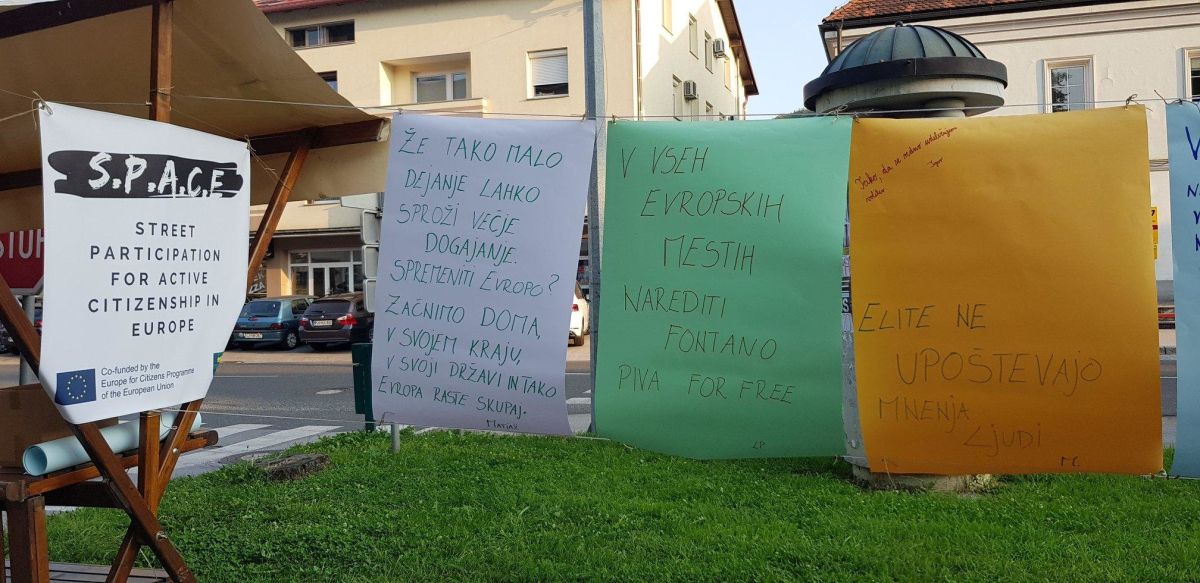 S.P.A.C.E
STREET
PARTICIPATION
FOR ACTIVE
CITIZENSHIP IN
EUROPE
Co-funded by the
Europe for Citizens Programme
of the European Union
ŽE TAKO MALO
DEJANJE LAHKO
SPROŽI VEČJE
DOGAJANJE.
SPREMENITI EVROPO?
ZAČNIMO DOMA,
V SVOJEM KRAJU,
V SVOJI DRŽAVI IN TAKO
EVROPA RASTE SKUPAJ.
V VSEH
EVROPSKIH
MESTIH
NAREDITI
FONTANO
PIVA FOR FREE
LP
ELITE NE
UPOŠTEVAJO
MNENJA
LJUDI
M.